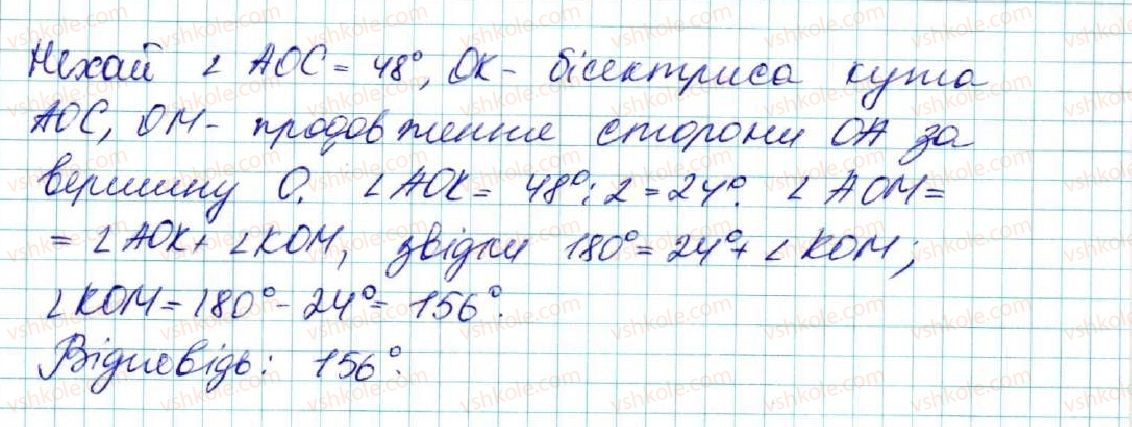 Нехай ∠ AOC = 48°, OK - бісектриса кута
AOC, OM - продовження сторони OA за
вершину O. ∠ AOK = 48° : 2 = 24°. ∠ AOM =
= ∠ AOK + ∠ KOM, звідки 180° = 24° + ∠ KOM;
∠ KOM = 180° - 24° = 156°.
Відповідь: 156°.